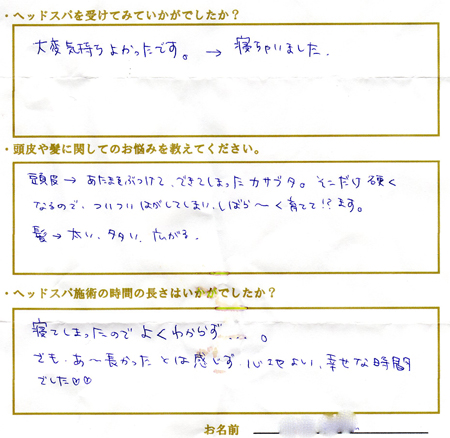 ・ヘッドスパを受けてみていかがでしたか？
大変気持ちよかったです。→ 寝ちゃいました.
・頭皮や髪に関してのお悩みを教えてください。
頭皮 → あたまをぶつけて、できてしまったカサブタ。そこだけ硬く
なるので、ついついはがしてしまい、しばら～く育てて!?ます。
髪 → 太い、多い、広がる.
・ヘッドスパ施術の時間の長さはいかがでしたか？
寝てしまったのでよくわからず…。
でも、あ～長かったとは感じず、心地よい、幸せな時間
でした♡♡
お名前